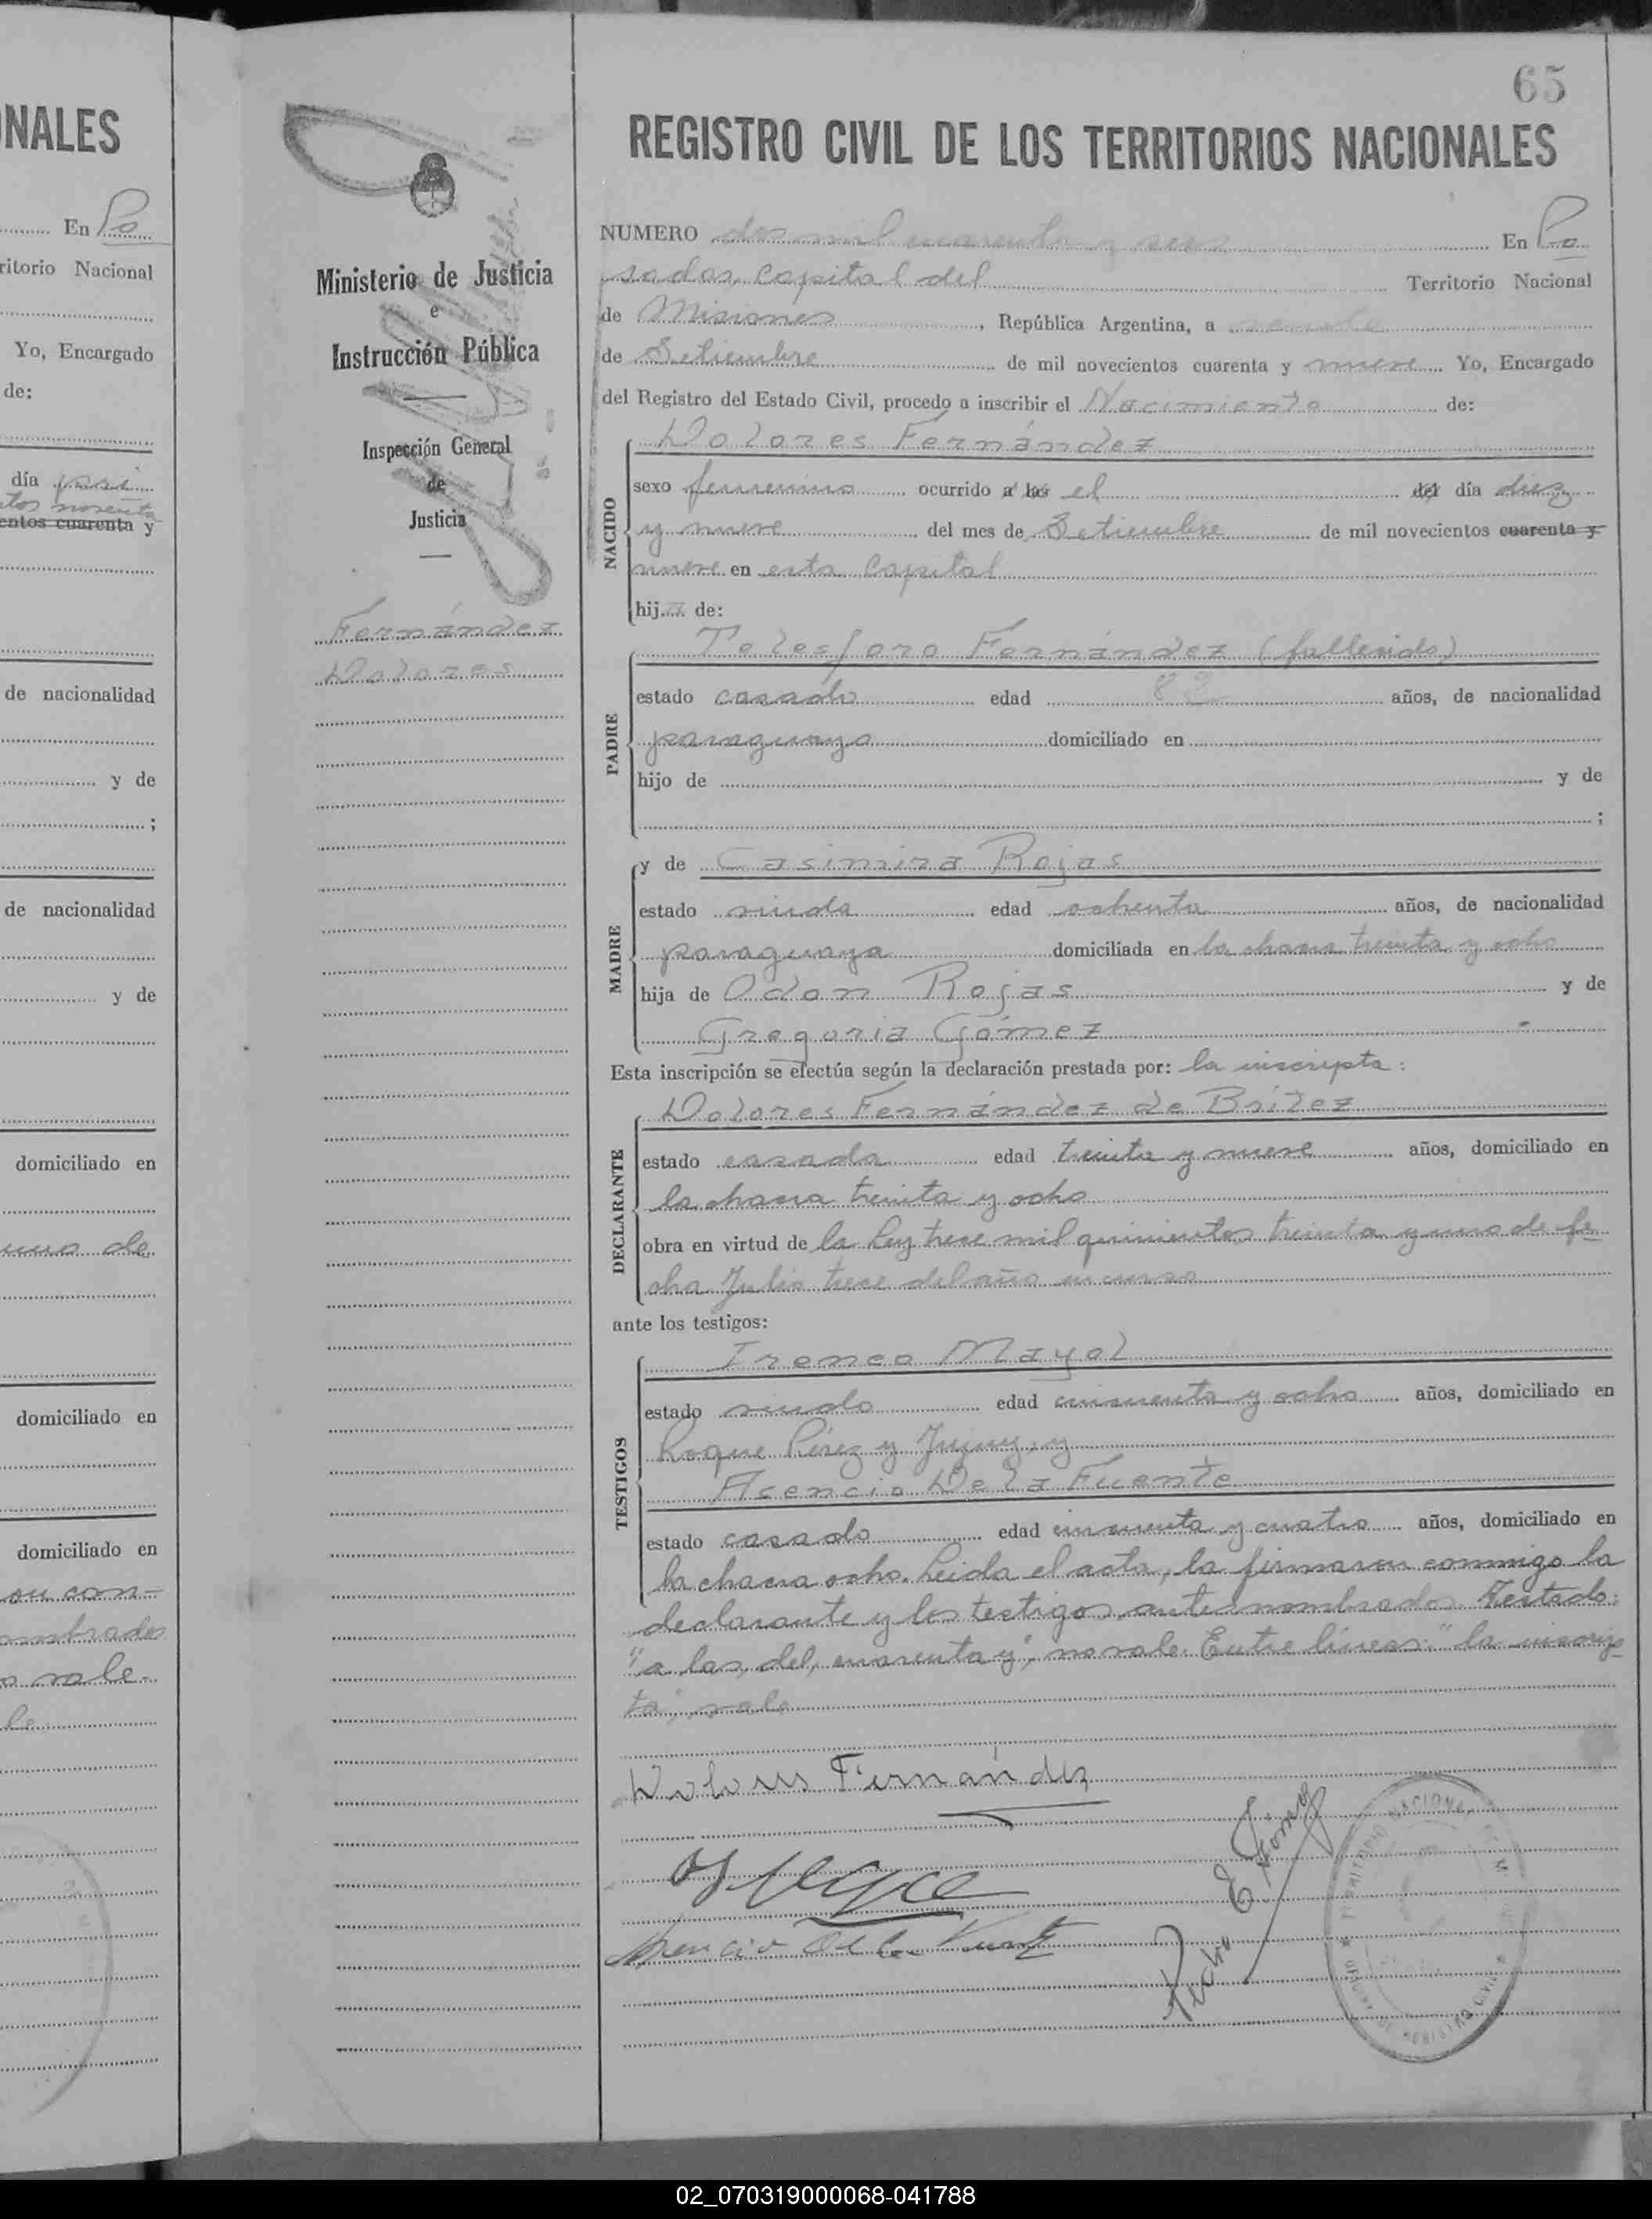 NALES
En Po
ritorio Nacional
Yo, Encargado
de:
día
entos cuarenta y
de nacionalidad
y de
;
de nacionalidad
y de
domiciliado en
uno de
domiciliado en
domiciliado en
on con-
ombrados
o vale.
le
Ministerio de Justicia
e
Instrucción Pública
Inspección General
de
Justicia
Fernández
Dolores
65
REGISTRO CIVIL DE LOS TERRITORIOS NACIONALES
NUMERO dos mil cuarenta y seis En Po
sadas, capital del Territorio Nacional
de Misiones, República Argentina, a
de Setiembre de mil novecientos cuarenta y nueve Yo, Encargado
del Registro del Estado Civil, procedo a inscribir el Nacimiento de:
NACIDO
Dolores Fernández
sexo femenino ocurrido a las el del día diez
y nueve del mes de Setiembre de mil novecientos cuarenta y
nueve en esta Capital
hija de:
PADRE
Telesforo Fernández (fallecido)
estado casado edad años, de nacionalidad
paraguayo domiciliado en
hijo de y de
;
MADRE
y de Casimira Rojas
estado viuda edad ochenta años, de nacionalidad
paraguaya domiciliada en la chacra treinta y ocho
hija de Odon Rojas y de
Gregoria Gómez
Esta inscripción se efectúa según la declaración prestada por: la inscripta:
DECLARANTE
Dolores Fernández de Brítez
estado casada edad treinta y nueve años, domiciliado en
la chacra treinta y ocho
obra en virtud de la Ley trece mil quinientos treinta y uno de fe
cha Julio trece del año en curso
ante los testigos:
TESTIGOS
Ireneo Mayol
estado viudo edad cincuenta y ocho años, domiciliado en
Roque Pérez y Jujuy, y
Asencio De la Fuente
estado casado edad cincuenta y cuatro años, domiciliado en
la chacra ocho. Leida el acta, la firmaron conmigo la
declarante y los testigos antes nombrados. Testado:
"a las, del, cuarenta y", no vale. Entre líneas: "la inscrip
ta", vale
Dolores Fernández
Asencio De la Fuente
02_070319000068-041788